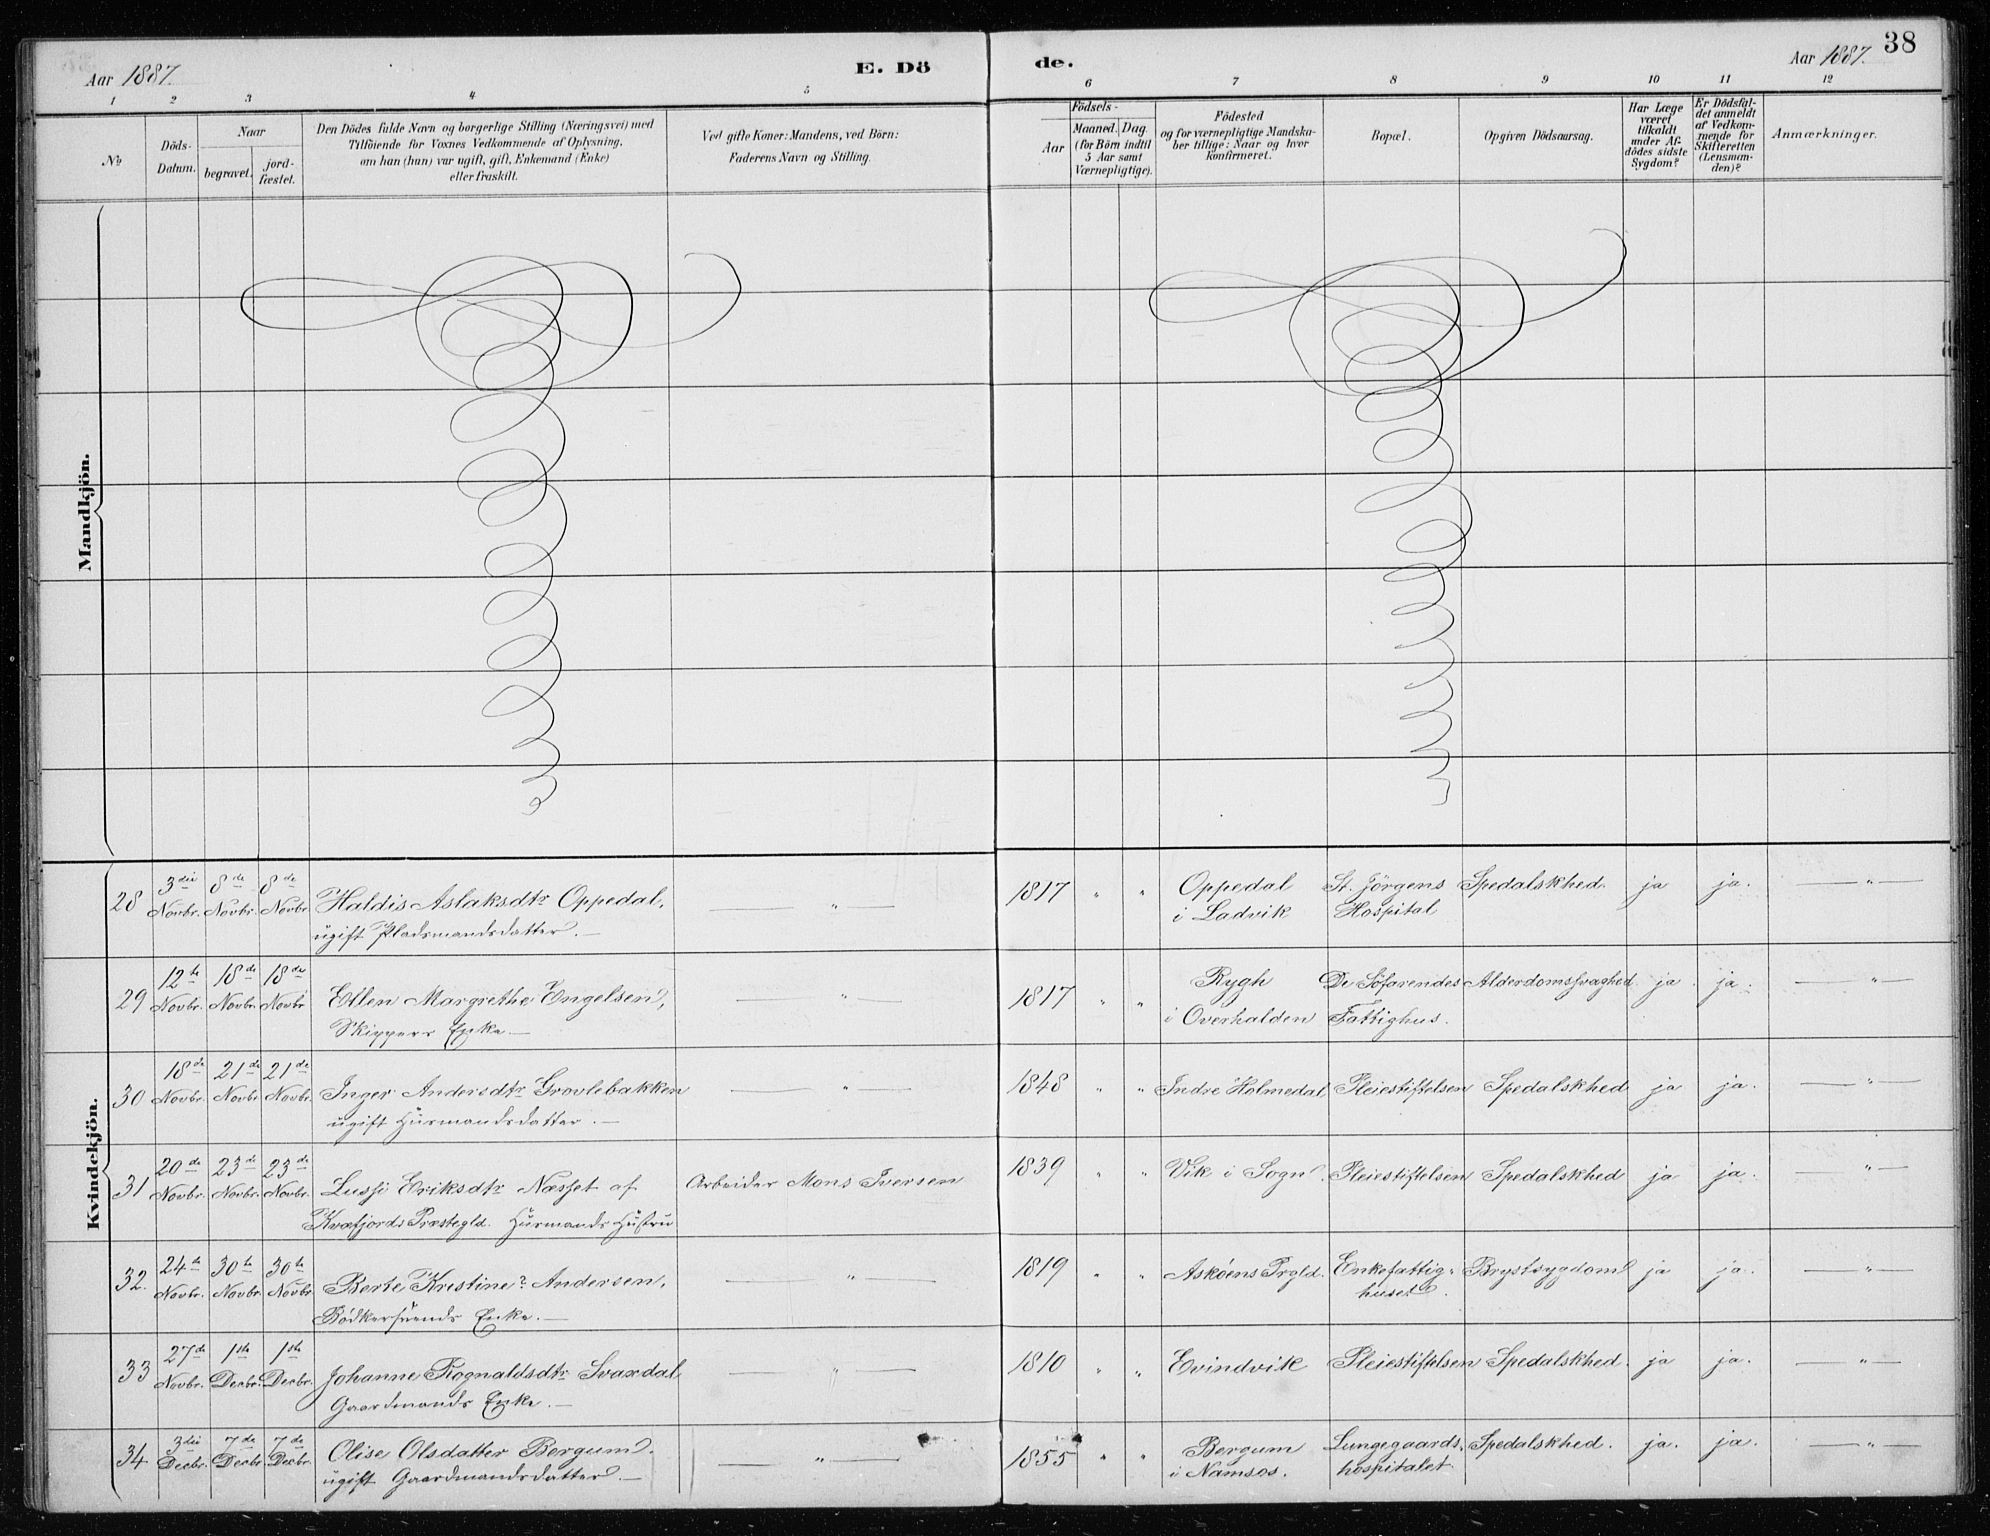 Aar 1887.
E. Dö
de.
Aar 1887.
38
1 2 3 4 5 6 7 8 9 10 11 12
No
Döds-
Datum.
Naar
begravet.
jord-
fæstet.
Den Dödes fulde Navn og borgerlige Stilling (Næringsvei) med
Tilföiende for Voxnes Vedkommende af Oplysning,
om han (hun) var ugift, gift, Enkemand (Enke)
eller fraskilt.
Ved gifte Koner: Mandens, ved Börn:
Faderens Navn og Stilling.
Födsels-
Aar
Maaned. Dag.
(for Börn indtil
5 Aar samt
Værnepligtige).
Födested
og for værnepligtige Mandska-
ber tillige: Naar og hvor
konfirmeret.
Bopæl.
Opgiven Dödsaarsag.
Har Læge
været
tilkaldt
under Af-
dödes sidste
Sygdom?
Er Dödsfal-
det anmeldt
af Vedkom-
mende for
Skifteretten
(Lensman-
den)?
Anmærkninger.
Mandkjön.
Kvindekjön.
28 3die Novbr. 8de Novbr. 8de Novbr. Haldis Aslaksdtr Oppedal, — " — 1817 " " Oppedal St. Jörgens Spedalskhed. ja ja. — " —
ugift Pladsmandsdatter. — i Ladvik Hospital
29 12te Novbr. 18de Novbr. 18de Novbr. Ellen Margrethe Engelsen, — " — 1817 " " Rygh De Söfarendes Alderdomssvaghed. ja ja. — " —
Skippers Enke — i Overhalden Fattighus.
30 18de Novbr. 21de Novbr. 21de Novbr. Inger Andersdtr Grovlebakken — " — 1848 " " Indre Holmedal Pleiestiftelsen Spedalskhed ja ja. — " —
ugift Husmandsdatter. —
31 20de Novbr. 23de Novbr. 23de Novbr. Lussi Eriksdtr Næsset af Arbeider Mons Iversen 1839 " " Vik i Sogn. Pleiestiftelsen Spedalskhed ja ja. — " —
Kvæfjords Præstegld. Husmands Hustru
32. 24de Novbr. 30te Novbr. 30te Novbr. Berte Kristine? Andersen, — " — 1819 " " Askøens Prgld. Enkefattig- Brystsygdom ja ja. — " —
Bödkersvends Enke. — huset.
33 27de Novbr. 1ste Decbr. 1ste Decbr. Johanne Rognaldsdtr Svardal — " — 1810 " " Evindvik Pleiestiftelsen Spedalskhed. ja ja. — " —
Gaardmands Enke. —
34 3die Decbr. 7de Decbr 7de Decbr. Olise Olsdatter Bergum. — " — 1855 " " Bergum Lungegaards- Spedalskhed. ja. ja. — " —
ugift Gaardmandsdatter. — i Namsos. hospitalet.